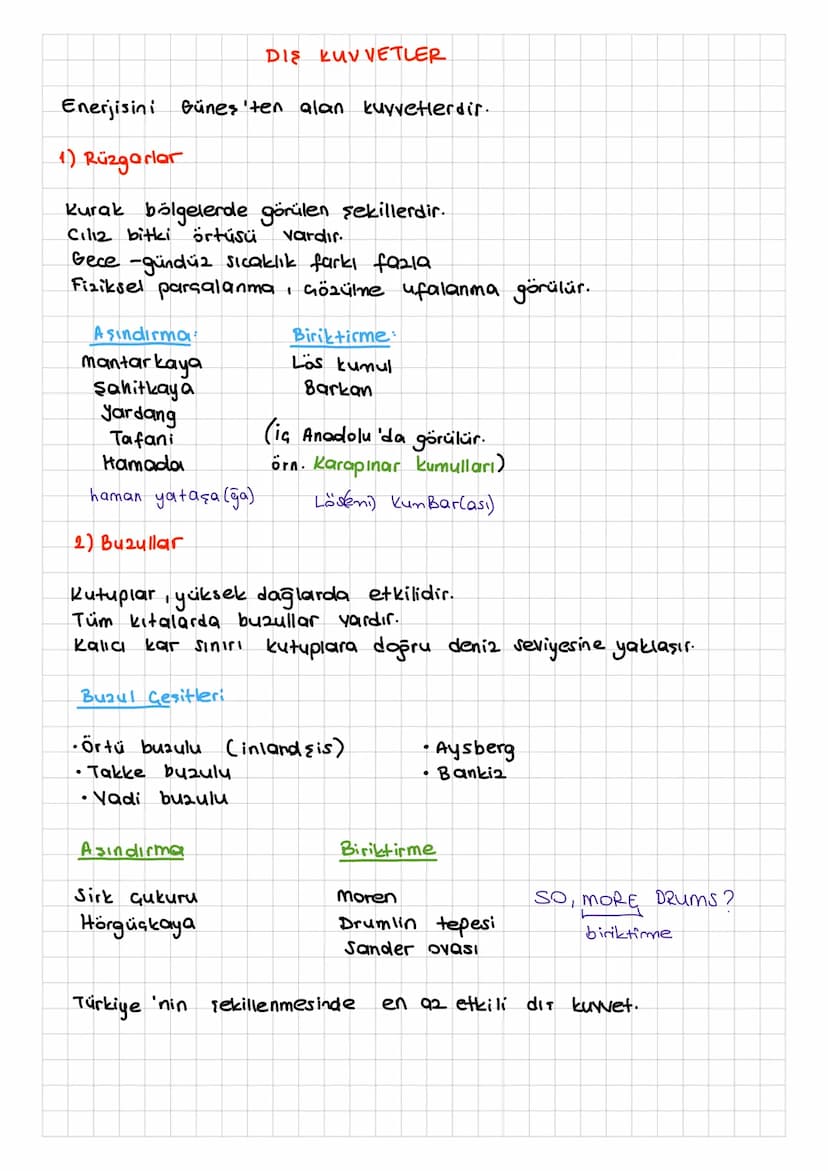 DIŞ KUVVETLER
Enerjisini Güneş'ten alan kuvvetlerdir.
1) Rüzgarlar
Kurak bölgelerde görülen şekillerdir.
Cılız bitki örtüsü vardır.
Gece -gündüz sıcaklık farkı fazla
Fiziksel parçalanma, çözülme ufalanma görülür.
Aşındırma: Biriktirme:
Mantarkaya Lös kumul
Şahitkaya Barkan
Yardang
Tafani (iç Anadolu'da görülür.
Hamada örn. Karapınar kumulları)
haman yataşa(ğa) Lös(emi) KumBar(ası)
2) Buzullar
Kutuplar, yüksek dağlarda etkilidir.
Tüm kıtalarda buzullar vardır.
Kalıcı kar sınırı kutuplara doğru deniz seviyesine yaklaşır.
Buzul Çeşitleri
• Örtü buzulu (inlandşis) • Aysberg
• Takke buzulu • Bankiz
• Vadi buzulu
Aşındırma Biriktirme
Sirk çukuru Moren SO, MORE DRUMS?
Hörgüçkaya Drumlin tepesi biriktirme
Sander ovası
Türkiye'nin şekillenmesinde en az etkili dış kuvvet.